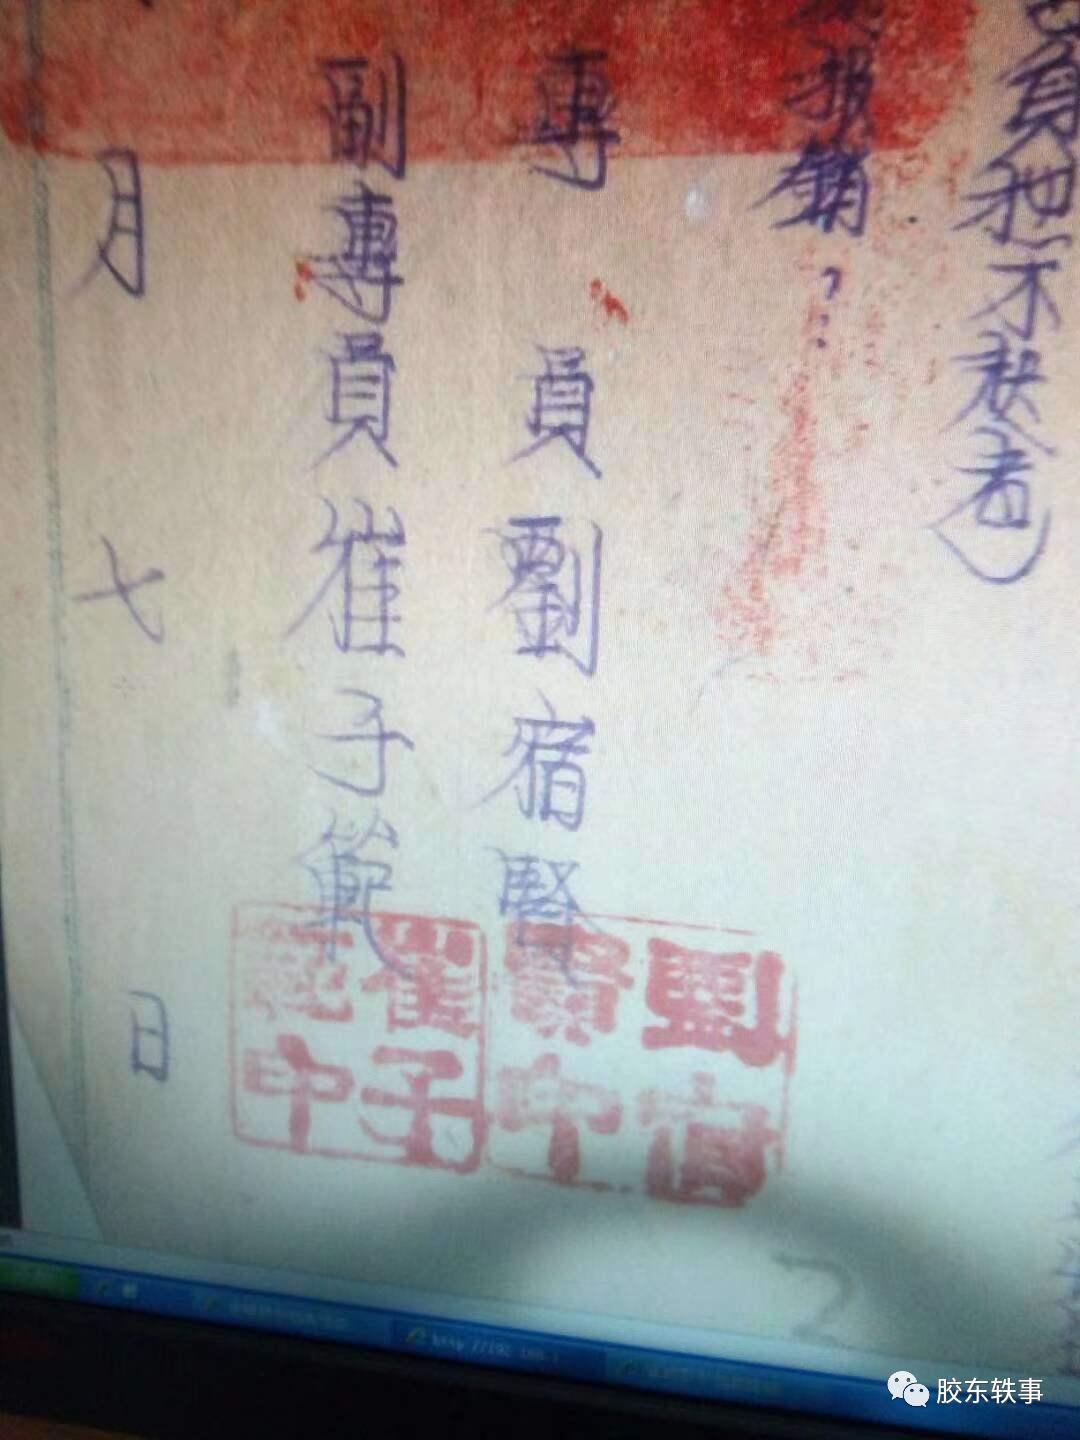 員私怒不起者）
报銷？：
專員劉宿賢
副專員崔子範
月七日
劉宿賢印
崔子範印
2
胶东轶事